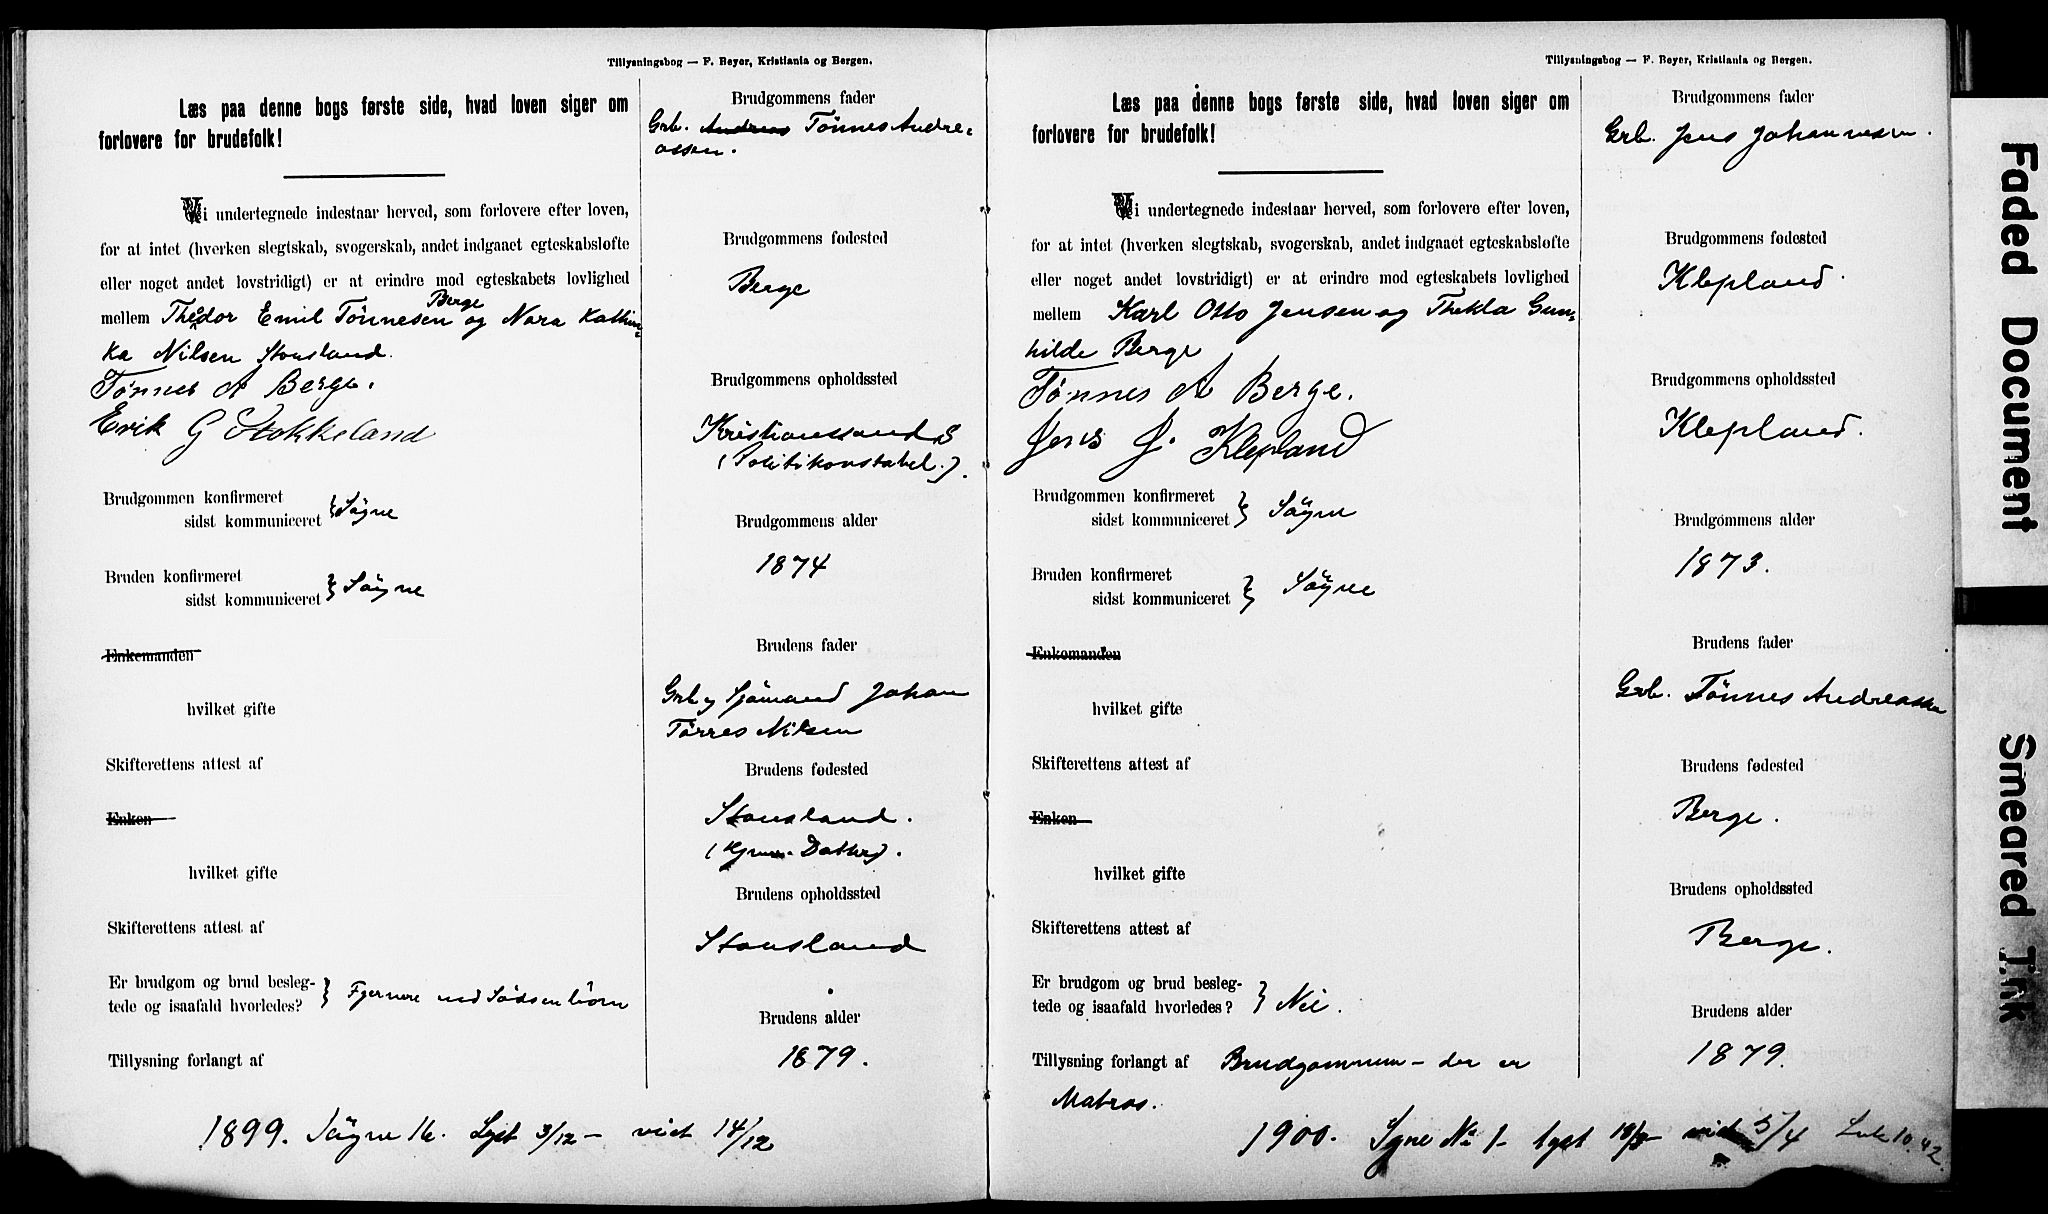 Tillysningsbog — F. Beyer, Kristiania og Bergen.
Læs paa denne bogs første side, hvad loven siger om
forlovere for brudefolk!
Vi undertegnede indestaar herved, som forlovere efter loven,
for at intet (hverken slegtskab, svogerskab, andet indgaaet egteskabsløfte
eller noget andet lovstridigt) er at erindre mod egteskabets lovlighed
Berge
mellem Theodor Emil Tönnesen og Nora Kathin-
ka Nilsen Stousland.
Tønnes A Berge.
Erik G Stokkeland
Brudgommen konfirmeret
sidst kommuniceret } Sögne
Bruden konfirmeret
sidst kommuniceret } Sögne
Enkemanden
hvilket gifte
Skifterettens attest af
Enken
hvilket gifte
Skifterettens attest af
Er brudgom og brud besleg-
tede og isaafald hvorledes? } Fjernere end Södskenbörn
Tillysning forlangt af
Brudgommens fader
Grb. Andreas Tönnes Andre-
assen.
Brudgommens fødested
Berge
Brudgommens opholdssted
Kristianssand S
(Politikonstabel.).
Brudgommens alder
1874
Brudens fader
Grb og Sjömand Johan
Törres Nilsen
Brudens fødested
Stousland.
Brudens opholdssted
Stousland
Brudens alder
1879.
1899. Sögne 16. Lyst 3/12 – viet 14/12
Tillysningsbog — F. Beyer, Kristiania og Bergen.
Læs paa denne bogs første side, hvad loven siger om
forlovere for brudefolk!
Vi undertegnede indestaar herved, som forlovere efter loven,
for at intet (hverken slegtskab, svogerskab, andet indgaaet egteskabsløfte
eller noget andet lovstridigt) er at erindre mod egteskabets lovlighed
mellem Karl Otto Jensen og Thekla Gun-
hilde Berge
Tønnes A Berge.
Jens J. Klepland
Brudgommen konfirmeret
sidst kommuniceret } Sögne
Bruden konfirmeret
sidst kommuniceret } Sögne
Enkemanden
hvilket gifte
Skifterettens attest af
Enken
hvilket gifte
Skifterettens attest af
Er brudgom og brud besleg-
tede og isaafald hvorledes? } Nei.
Tillysning forlangt af Brudgommen – der er
Matros.
Brudgommens fader
Grb. Jens Johannesen.
Brudgommens fødested
Klepland.
Brudgommens opholdssted
Klepland.
Brudgommens alder
1873.
Brudens fader
Grb. Tönnes Andreassen
Brudens fødested
Berge.
Brudens opholdssted
Berge.
Brudens alder
1879.
1900. Sgne No 1 – lyst – viet 5/4 Luk 10.42.
Faded Document
Smeared Ink